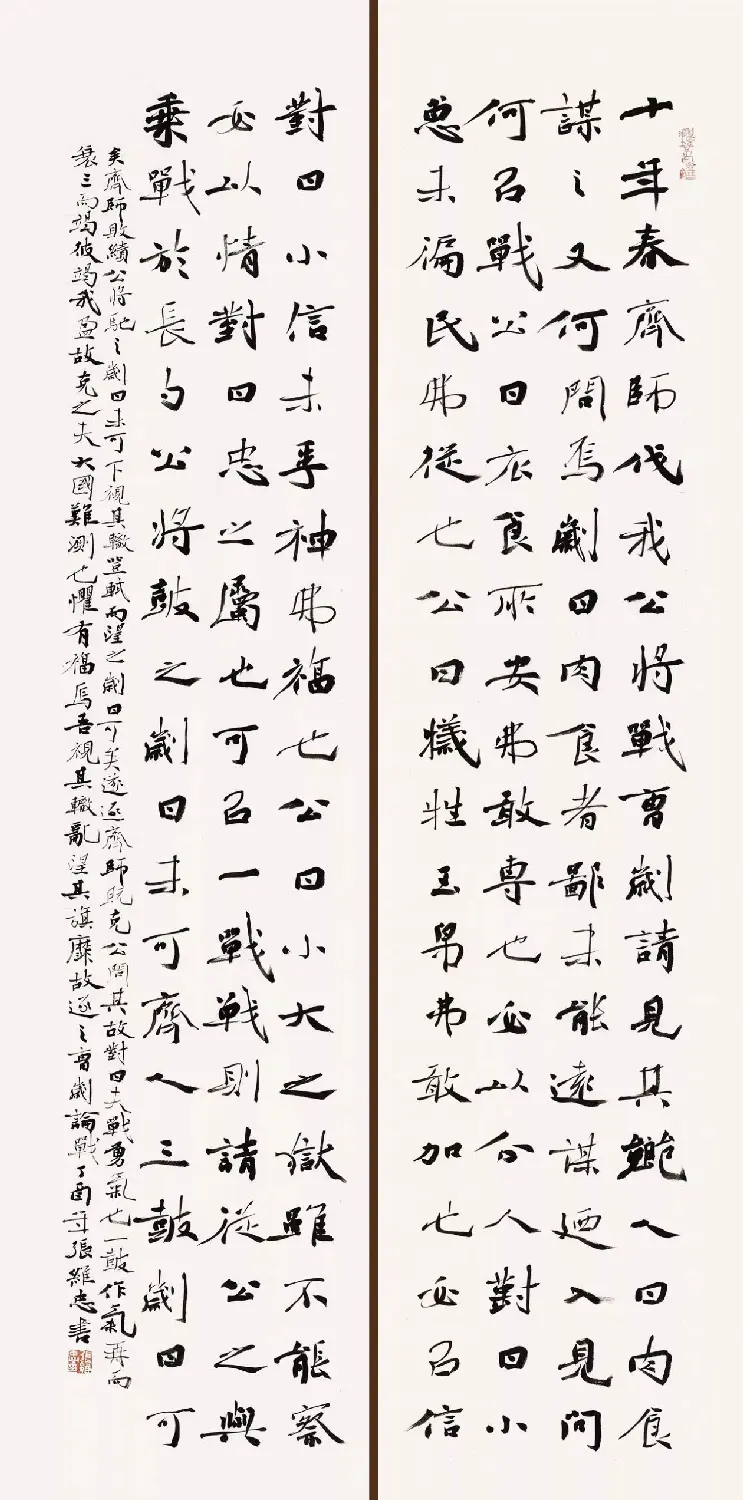 十年春齊師伐我公將戰曹劌請見其鄉人曰肉食
謀之又何間焉劌曰肉食者鄙未能遠謀廼入見問
何以戰公曰衣食所安弗敢專也必以分人對曰小
惠未徧民弗從也公曰犧牲玉帛弗敢加也必以信
對曰小信未孚神弗福也公曰小大之獄雖不能察
必以情對曰忠之屬也可以一戰戰則請從公之與
乘戰於長勺公將鼓之劌曰未可齊人三鼓劌曰可
矣齊師敗績公將馳之劌曰未可下視其轍登軾而望之劌曰可矣遂逐齊師既克公問其故對曰夫戰勇氣也一鼓作氣再而
衰三而竭彼竭我盈故克之夫大國難測也懼有福焉吾視其轍亂望其旗靡故逐之曹劌論戰丁酉年張維忠書